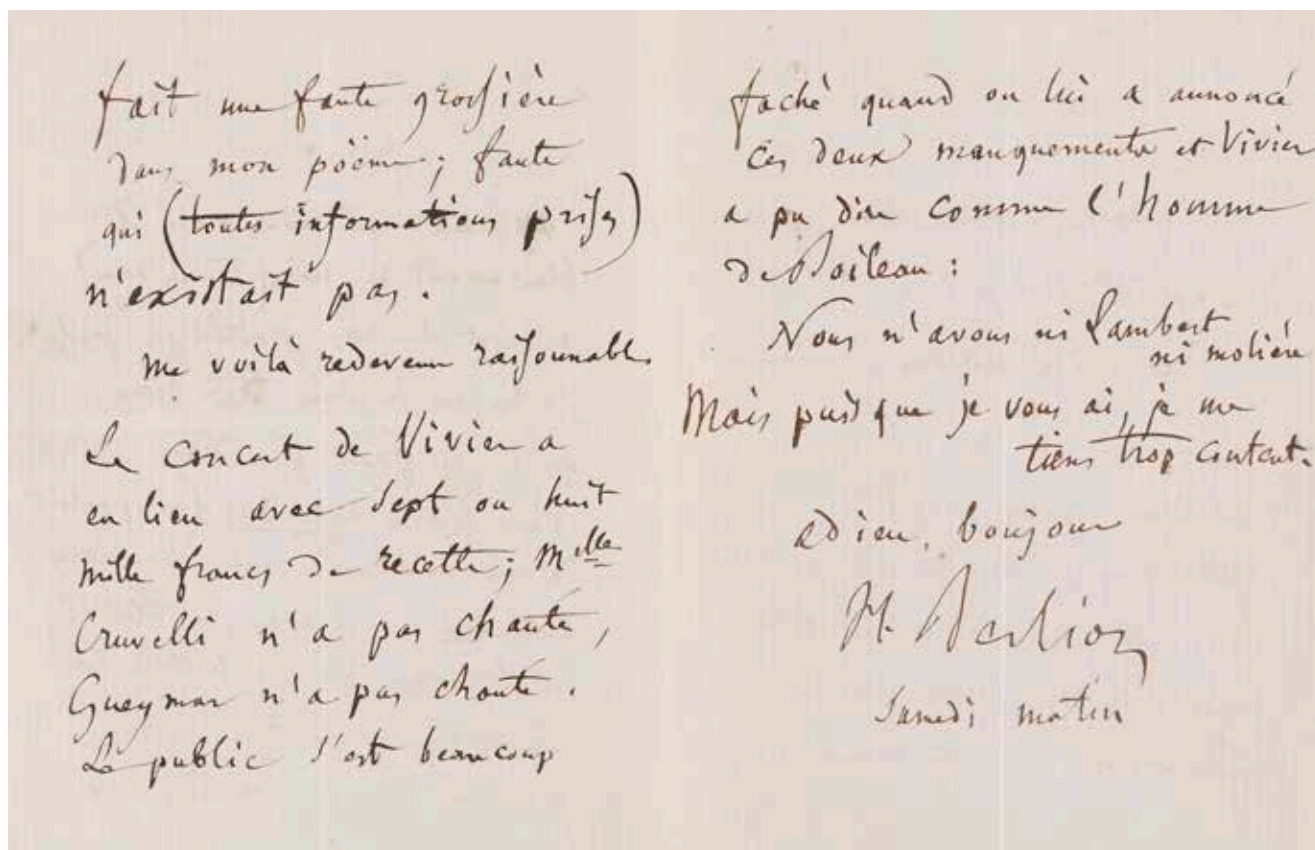 fait une faute grossière
dans mon poëme; faute
qui (toutes informations prises)
n'existait pas.
me voilà redevenu raisonnable
Le concert de Vivier a
eu lieu avec sept ou huit
mille francs de recette; Mlle
Cruvelli n'a pas chanté,
Gueymar n'a pas chanté.
Le public s'est beaucoup
faché quand on lui a annoncé
ces deux manquements et Vivier
a pu dire comme l'homme
de Boileau:
Nous n'avons ni Lambert
ni molière
Mais puisque je vous ai, je me
tiens trop content.
adieu, bonjour
H. Berlioz
Samedi matin